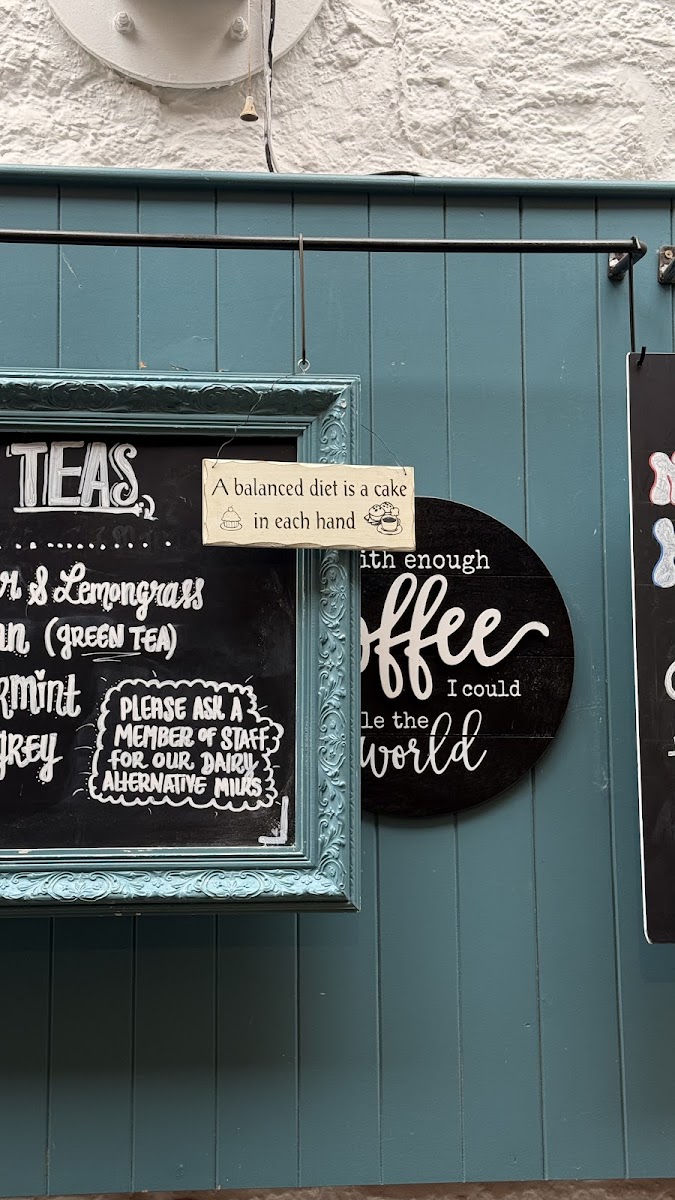 TEAS
& Lemongrass
(GREEN TEA)
GREY
PLEASE ASK A
MEMBER OF STAFF
FOR OUR DAIRY
ALTERNATIVE MILKS
A balanced diet is a cake
in each hand
enough
I could
the
world